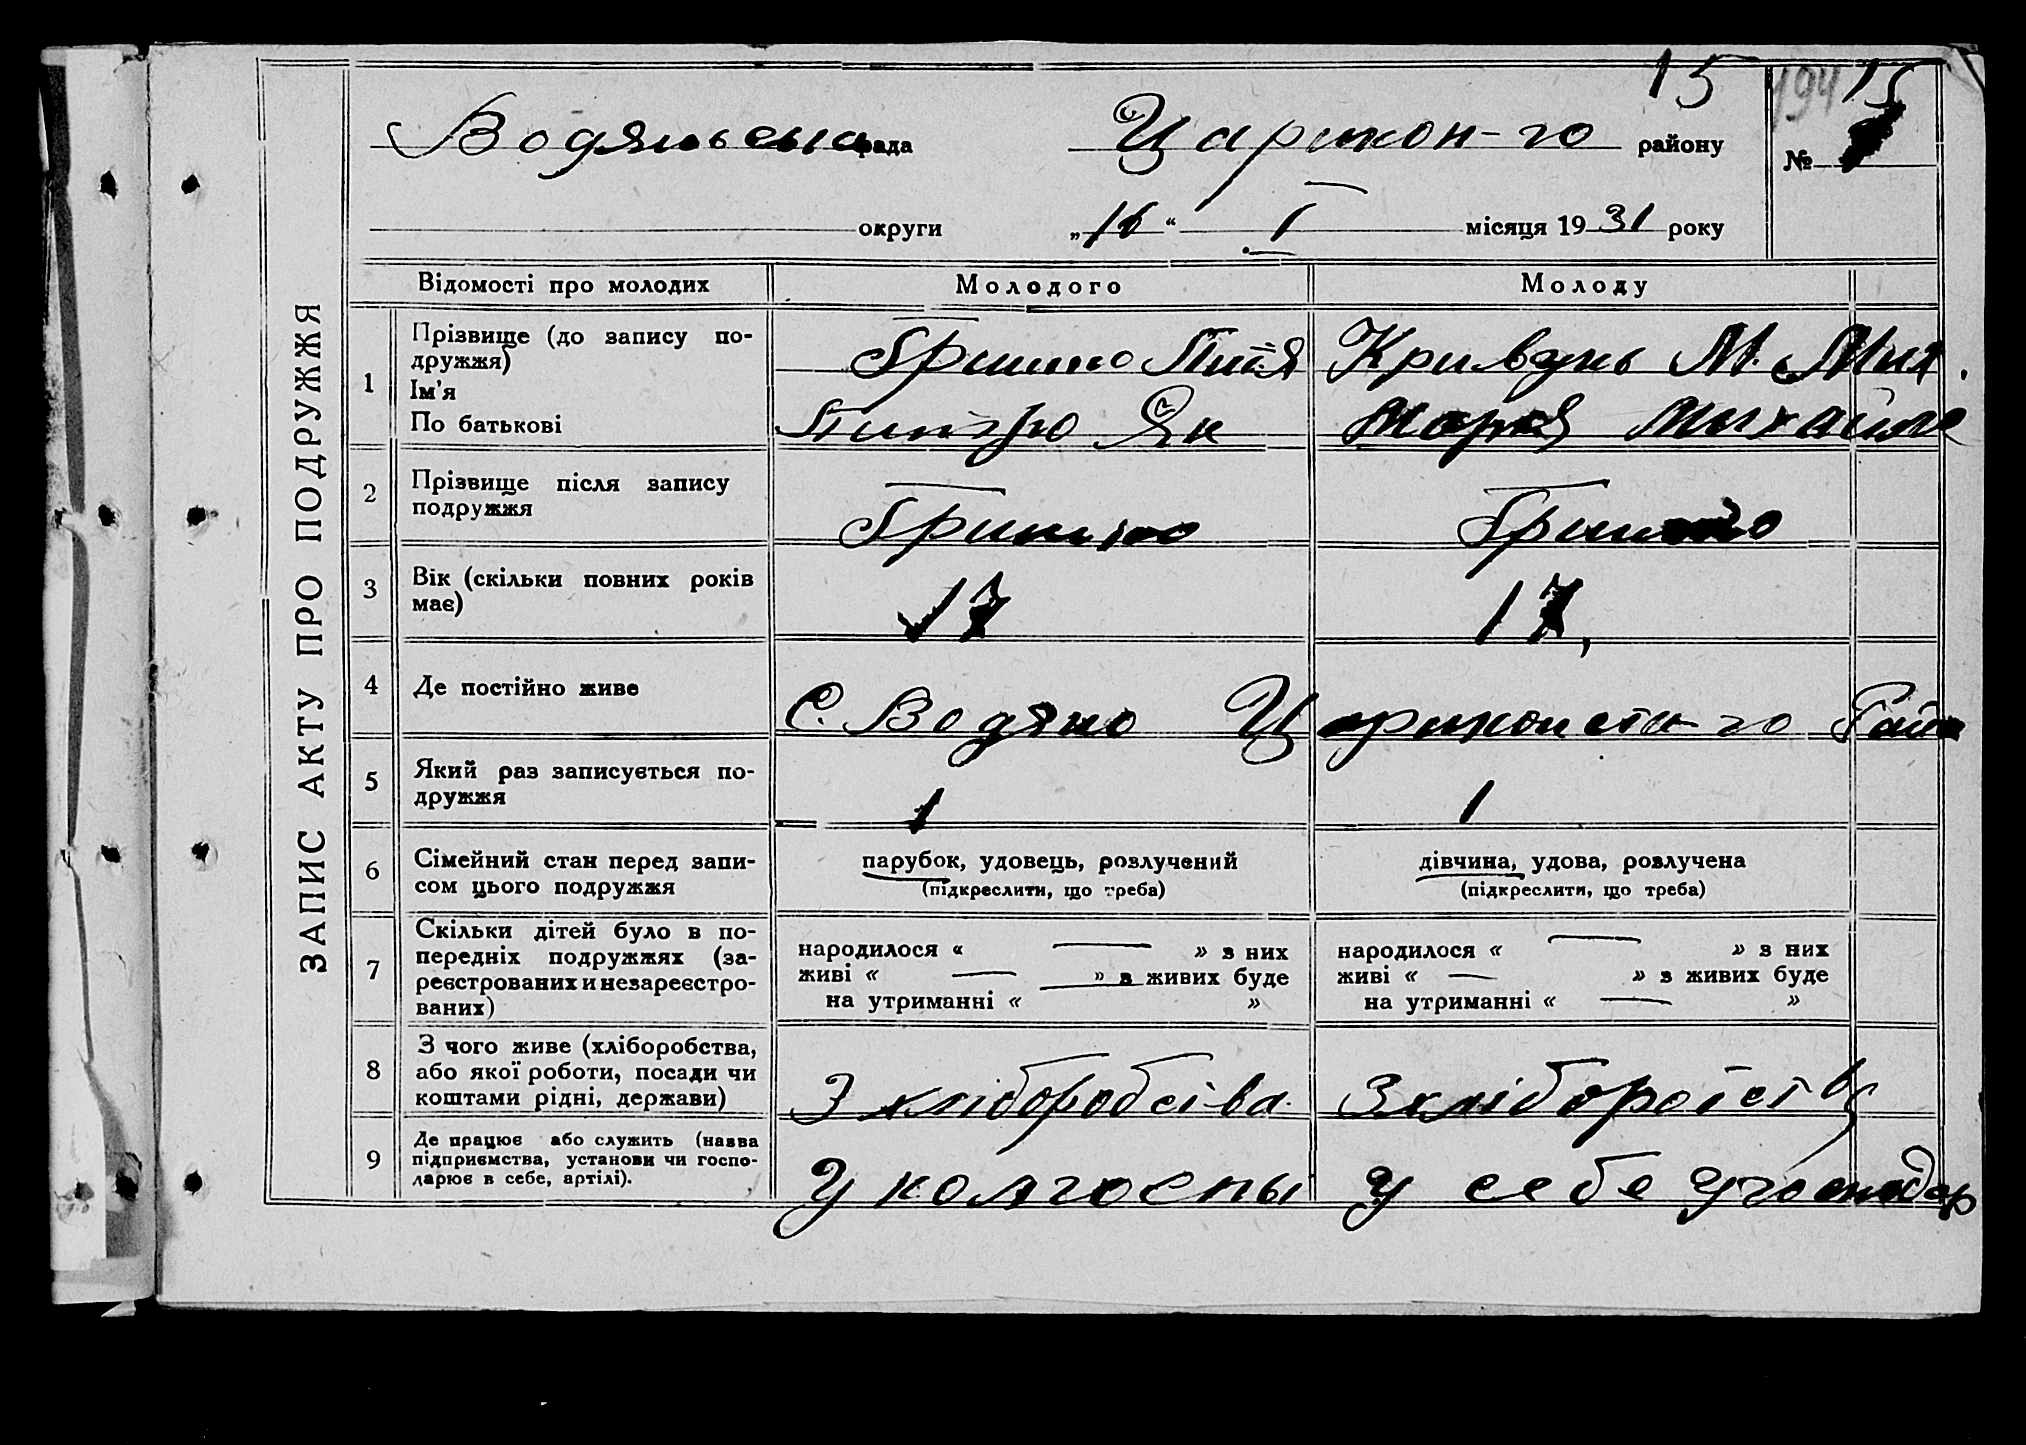 15
194 15
Водянська рада Царичон-го району №
округи „16“ I місяця 1931 року
ЗАПИС АКТУ ПРО ПОДРУЖЖЯ
Відомості про молодих Молодого Молоду
1 Прізвище (до запису по-
дружжя)
Ім'я
По батькові
Гришко
Як
М. Мих.
Михайл
2 Прізвище після запису
подружжя
Гришко Гришко
3 Вік (скільки повних років
має)
17 17,
4 Де постійно живе
С. Водяно Царичонськ-го Рай
5 Який раз записується по-
дружжя
1 1
6 Сімейний стан перед запи-
сом цього подружжя
парубок, удовець, розлучений
(підкреслити, що треба)
дівчина, удова, розлучена
(підкреслити, що треба)
7 Скільки дітей було в по-
передніх подружжях (за-
реєстрованих и незареєстро-
ваних)
народилося « — » з них
живі « — » з живих буде
на утриманні « — »
народилося « — » з них
живі « — » з живих буде
на утриманні « — »
8 З чого живе (хліборобства,
або якої роботи, посади чи
коштами рідні, держави)
З хліборобства
9 Де працює або служить (назва
підприємства, установи чи госпо-
дарює в себе, артілі).
У колгоспы у себе у господар